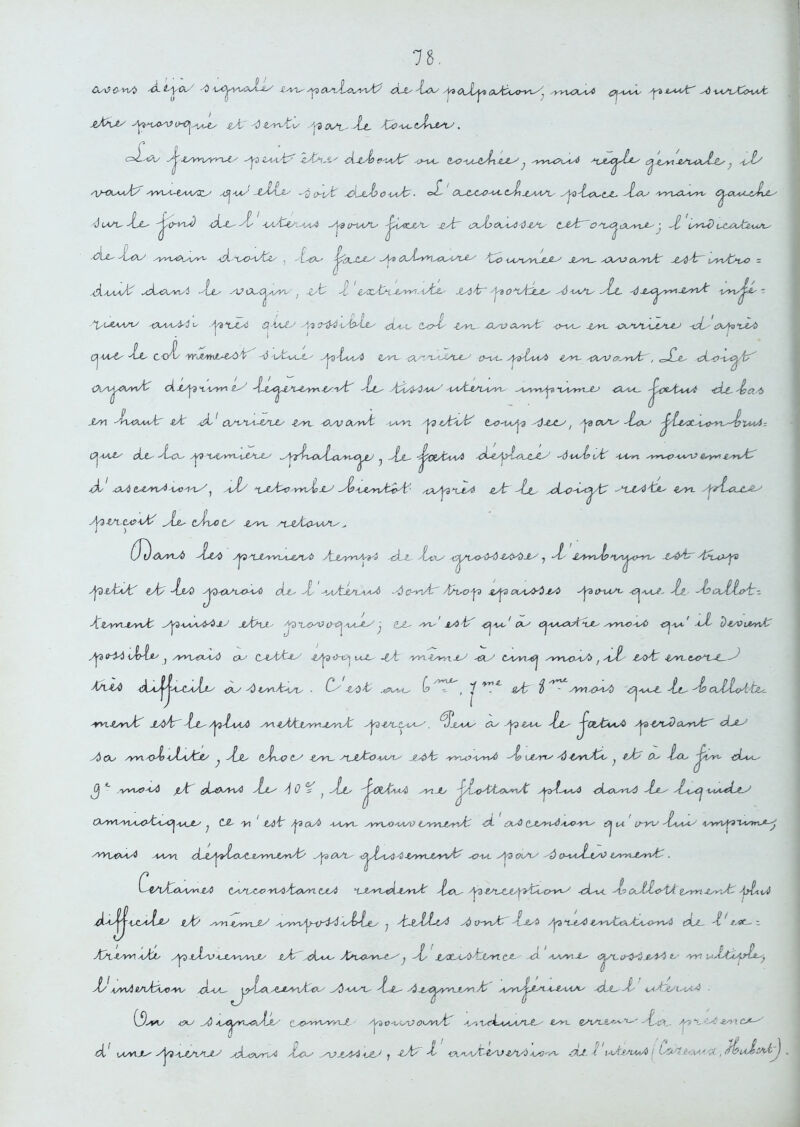 78.
avons déjà signalé en parlant de la palpation, mais qui peut surtout
être provoqué et senti par le toucher.
La femme peut être debout ou couchée, mais règle générale, il
vaut mieux qu'elle soit debout. L'accoucheur place la main gauche
sur le fond de l'utérus pour fixer et abaisser cet organe ; l'indicateur
de la main droite, la face palmaire tournée en avant est intro =
duit dans le vagin, et l'extrémité est portée sur le segment infé =
rieur aussi près que possible du col en avant ou en arrière d'après
que le col même est situé plus en arrière ou plus en avant. Le doigt
ayant déprimé légèrement le tissu utérin imprime au foetus de bas
en haut et d'arrière en avant un petit coup sec, pour la flexion brus =
que de la première phalange, le foetus déplacé subit un mouvement
d'ascension, il retombe bientôt après et le doigt resté en place
perçoit le choc en retour.
Dans les premiers temps de la grossesse, l'embryon est trop
petit et les parois de l'utérus sont trop épaisses pour que le ballot =
tement puisse être provoqué ; ce n'est qu'à quatre mois qu'il devient
possible, mais à cette époque et même à cinq mois, il est encore
très difficile à sentir. C'est au 6me, 7me et 8me mois que le ballotte
ment est le plus nettement perçu. Peu à peu le foetus perdant de
sa mobilité, le choc en retour est moins bien senti, et à la fin du
9e mois et dans le 10e, le foetus ne flottant plus dans le liquide
amniotique, ce n'est pas un mouvement d'ascension qu'on lui imprime,
mais un déplacement par glissement ou par soulèvement.
Certaines circonstances rendent la perception du ballottement plus
difficile et même impossible, telles sont les présentations de l'ex =
trémité pelvienne et du tronc, l'existence d'une grossesse multiple,
l'insertion du placenta sur le segment inférieur de l'utérus.
On a signalé comme pouvant induire en erreur la présence
d'une pierre dans la vessie, et l'antéversion de l'utérus ( , ).